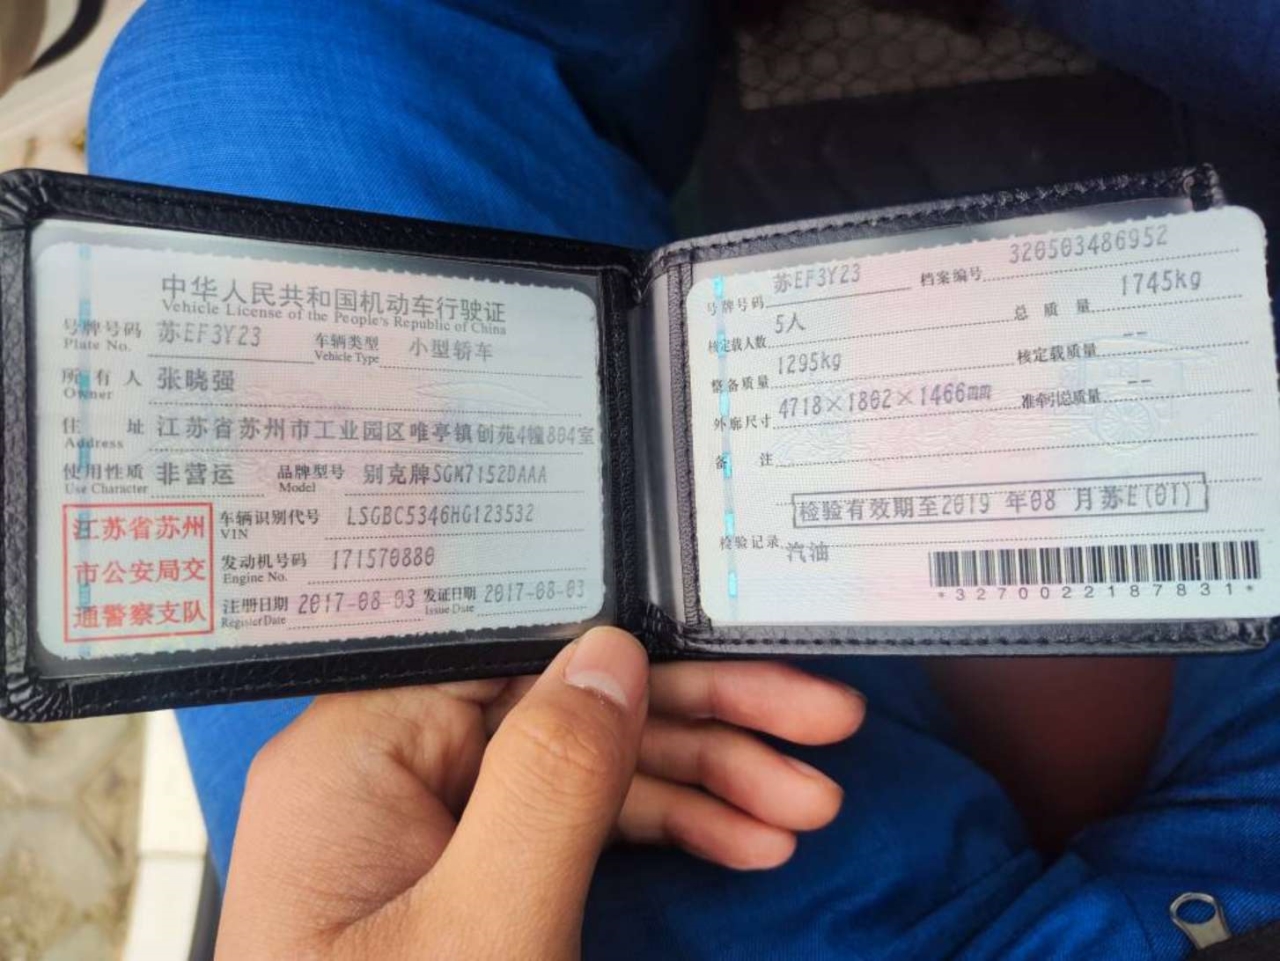 中华人民共和国机动车行驶证
Vehicle License of the People's Republic of China
号牌号码 苏EF3Y23 车辆类型 小型轿车
Plate No. Vehicle Type
所有人 张晓强
Owner
住址 江苏省苏州市工业园区唯亭镇创苑4幢804室
Address
使用性质 非营运 品牌型号 别克牌SGM7152DAAA
Use Character Model
江苏省苏州
市公安局交
通警察支队
车辆识别代号 LSGBC5346HG123532
VIN
发动机号码 171570880
Engine No.
注册日期 2017-08-03 发证日期 2017-08-03
Register Date Issue Date
号牌号码 苏EF3Y23 档案编号 320503486952
核定载人数 5人 总质量 1745kg
整备质量 1295kg 核定载质量 --
外廓尺寸 4718×1802×1466mm 准牵引总质量 --
备注
检验有效期至2019 年08 月苏E(01)
检验记录 汽油
*3270022187831*